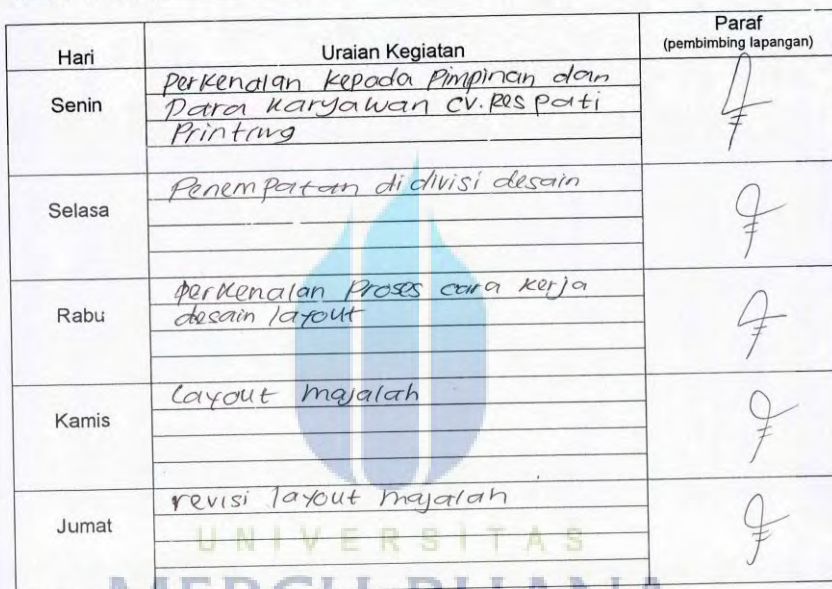 Hari
Uraian Kegiatan
Paraf
(pembimbing lapangan)
Senin
Perkenalan kepada Pimpinan dan
Para karyawan CV. Respati
Printing
Selasa
Penempatan di divisi desain
Rabu
perkenalan Proses cara kerja
desain layout
Kamis
layout majalah
Jumat
revisi layout majalah
UNIVERSITAS
MERCU BUANA